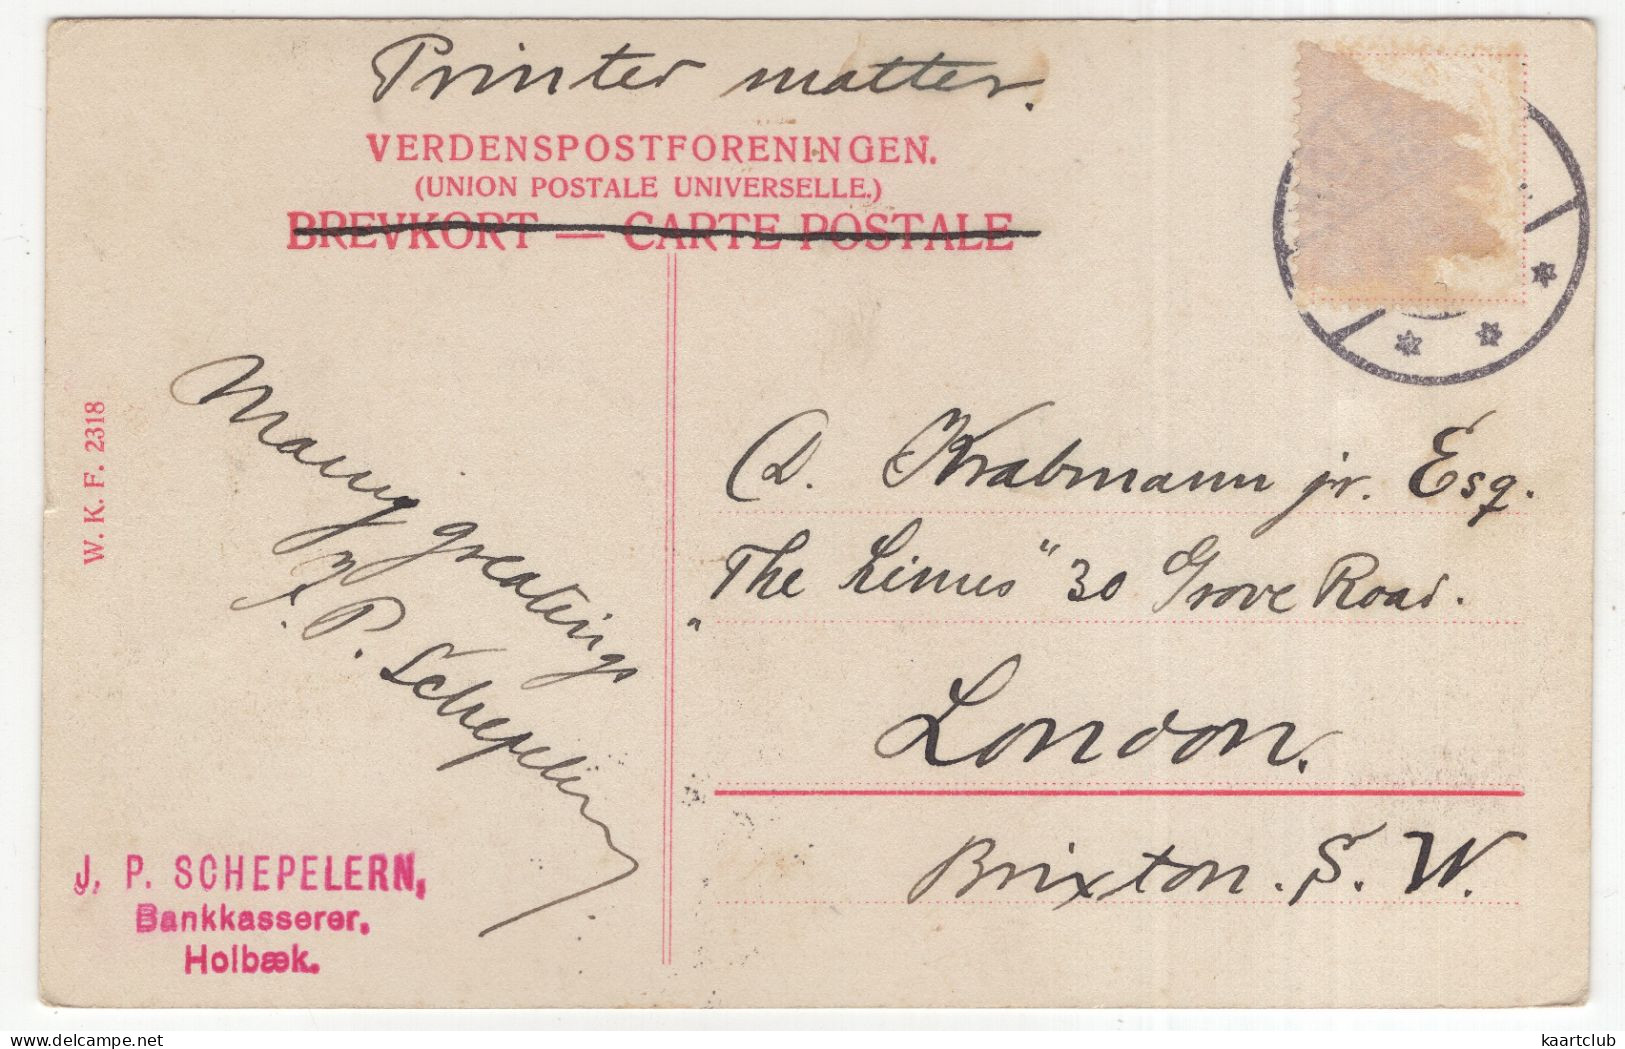 Printed matter.
VERDENSPOSTFORENINGEN.
(UNION POSTALE UNIVERSELLE.)
BREVKORT — CARTE POSTALE
W. K. F. 2318
Many greetings
J. P. Schepelern
J. P. SCHEPELERN,
Bankkasserer,
Holbæk.
D. Krabmann jr. Esq.
"The Limes" 30 Grove Road.
London.
Brixton. S. W.
kaartclub